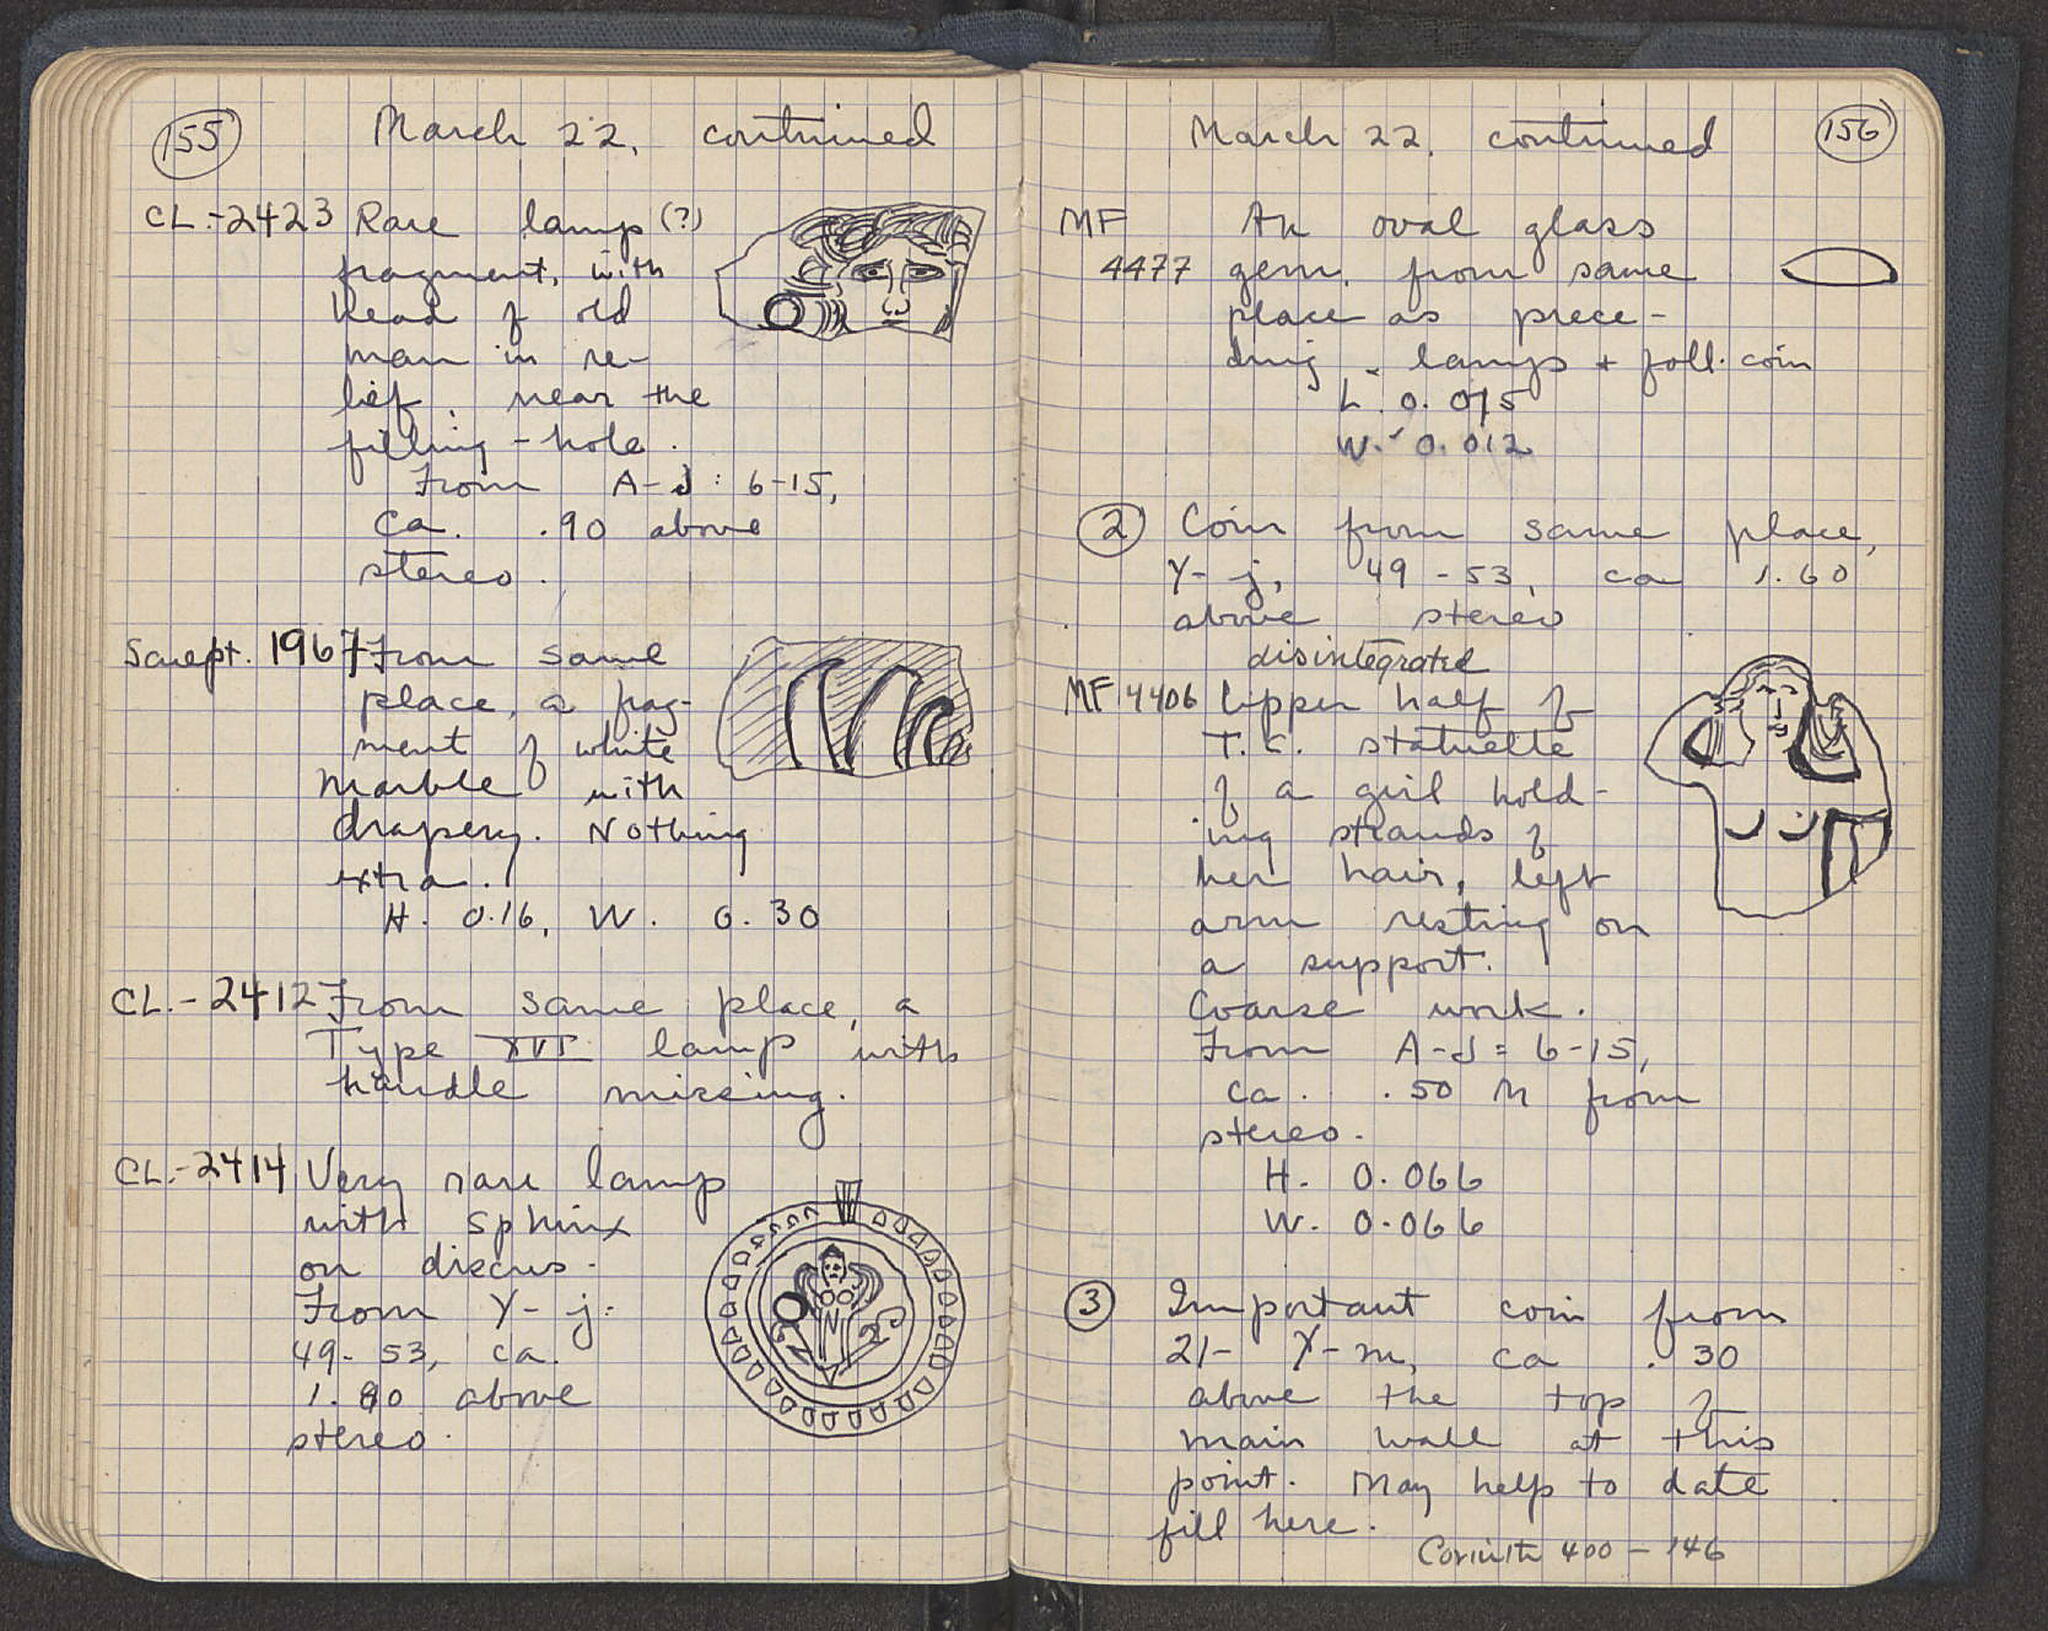 155
March 22, continued
CL.-2423 Rare lamp (?)
fragment, with
head of old
man in re-
lief, near the
filling-hole.
From A-J: 6-15,
ca. .90 above
stereo.
Sculpt. 1967 From same
place, a frag-
ment of white
marble with
drapery. Nothing
extra.
H. 0.16, W. 0.30
CL.-2412 From same place, a
Type XVI lamp with
handle missing.
CL.-2414 Very rare lamp
with sphinx
on discus.
From Y-j:
49-53, ca.
above
stereo.
March 22, continued
156
MF An oval glass
4477 gem, from same
place as prece-
ding lamps + foll. coin
L. 0.015
W. 0.012
2 Coin from same place,
Y-j, 49-53, ca 1.60
above stereo
disintegrated
MF 4406 Upper half of
T.C. statuette
of a girl hold-
ing strands of
her hair, left
arm resting on
a support.
Coarse work.
From A-J: 6-15,
ca. .50 m from
stereo.
H. 0.066
W. 0.066
3 Important coin from
21- Y-m, ca .30
above the top of
main wall at this
point. May help to date
fill here.
Corinth 400-146